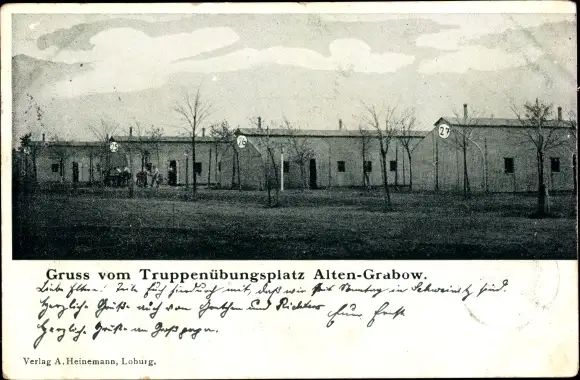 26
27
Gruss vom Truppenübungsplatz Alten-Grabow.
Liebe Eltern! Teile Euch hierdurch mit, daß wir seit Sonntag in Schweinitz sind.
Herzliche Grüße auch von und Richter
Herzliche Grüße an Großpapa.
Verlag A. Heinemann, Loburg.